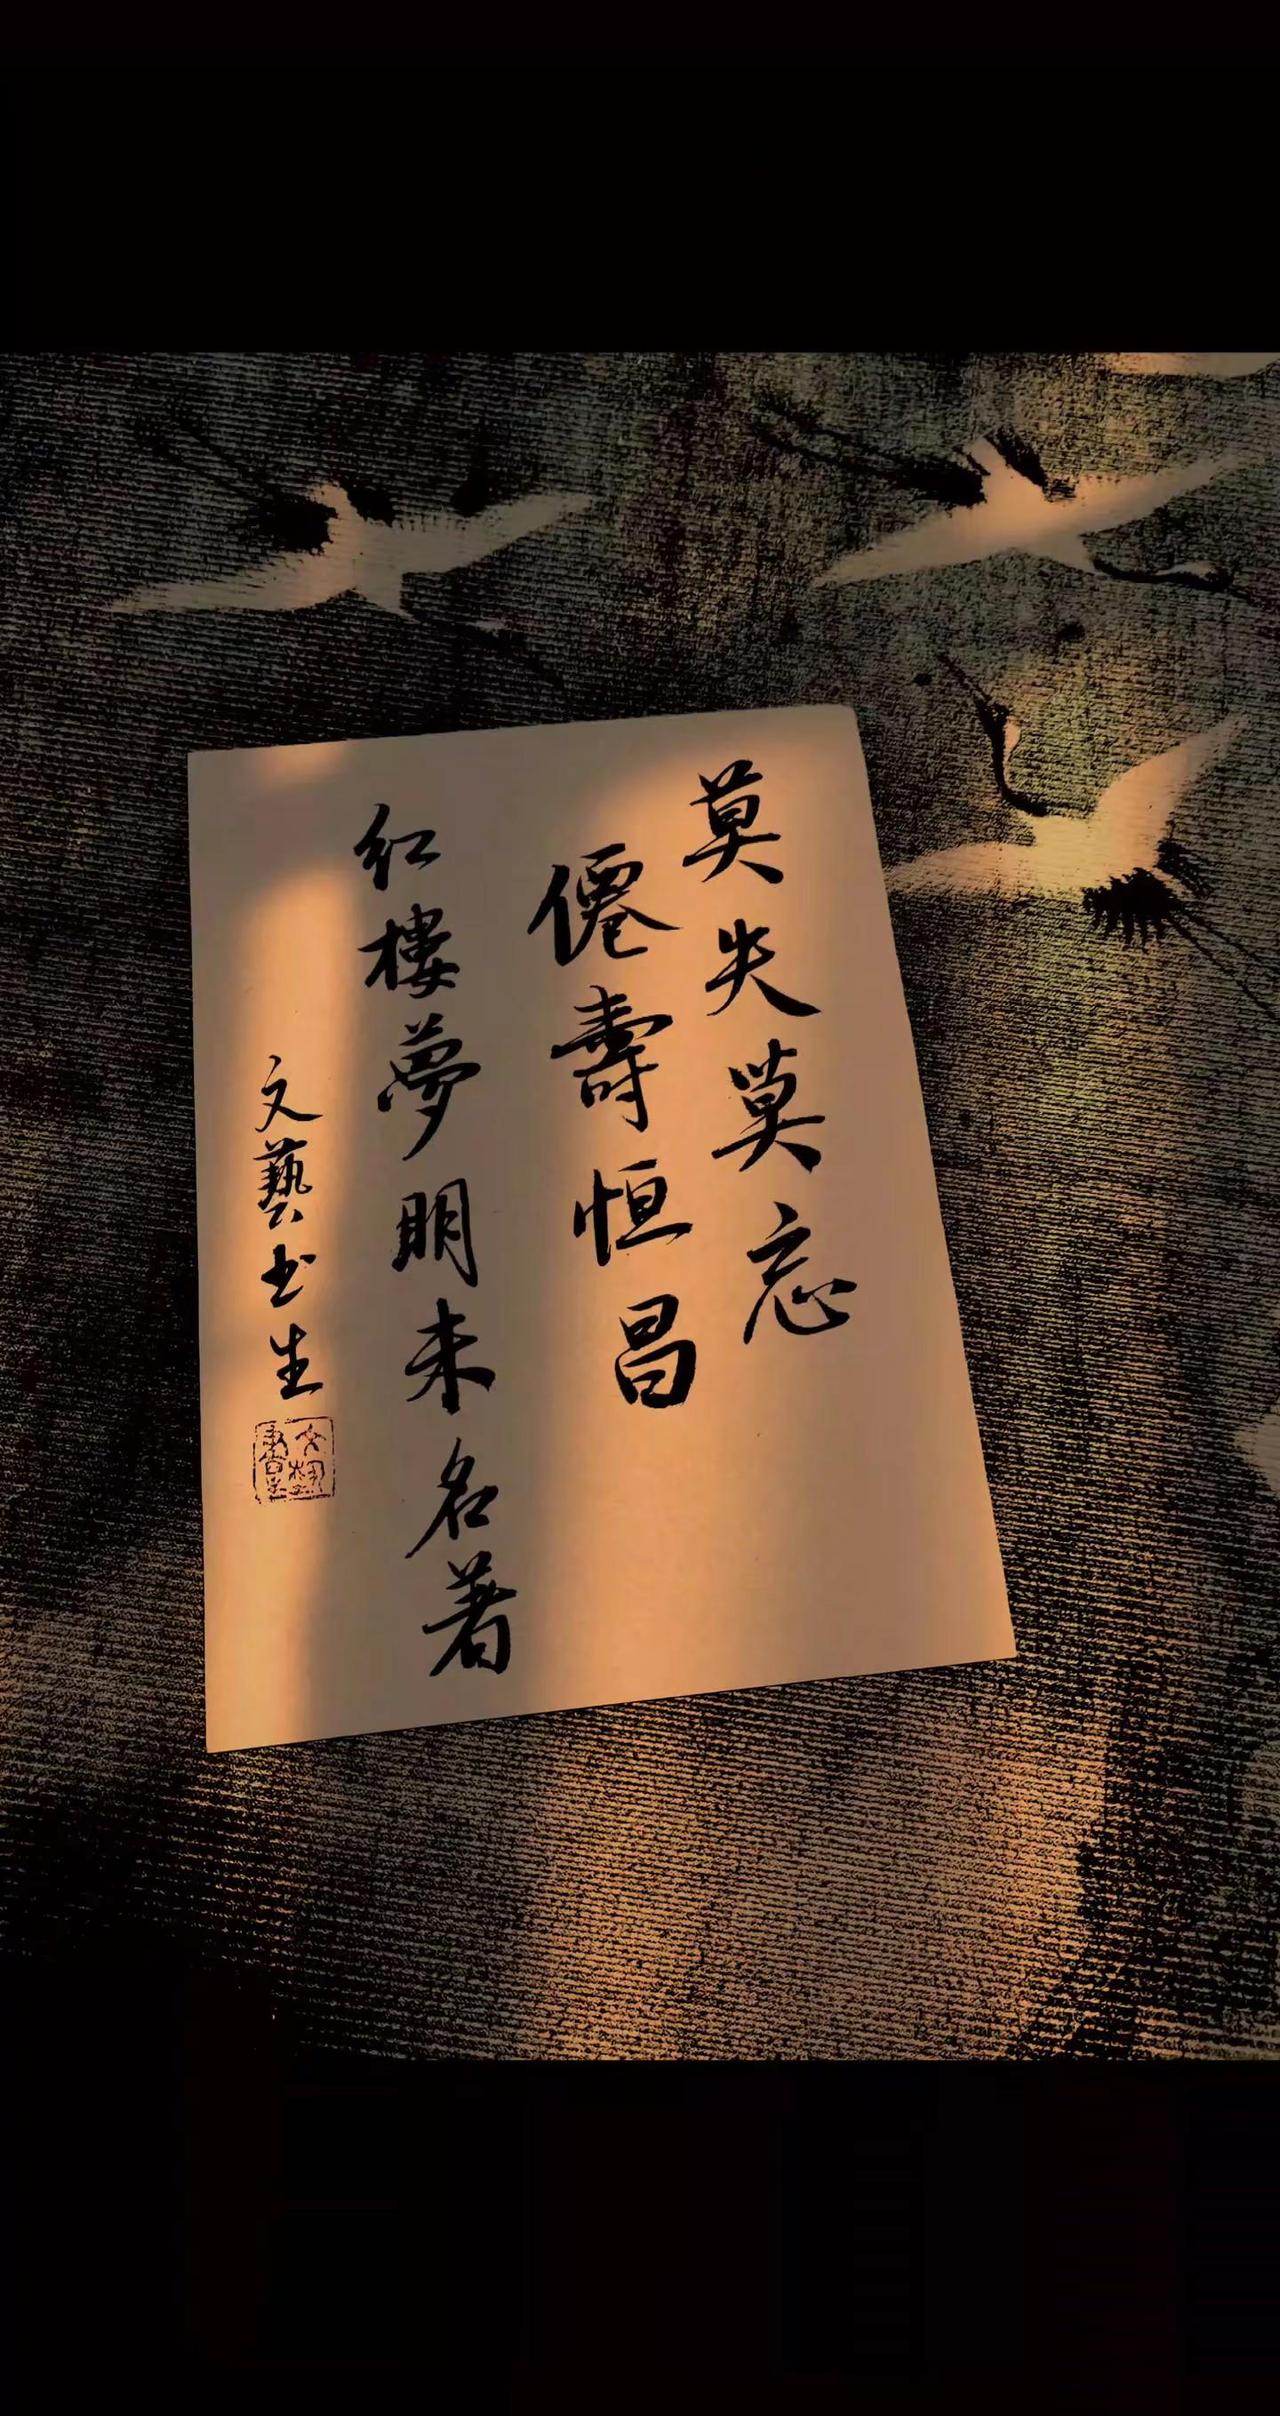 莫失莫忘
僊壽恒昌
紅樓夢明未名著
文藝书生